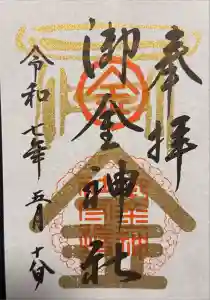 奉拝
御金神社
令和七年五月十八日